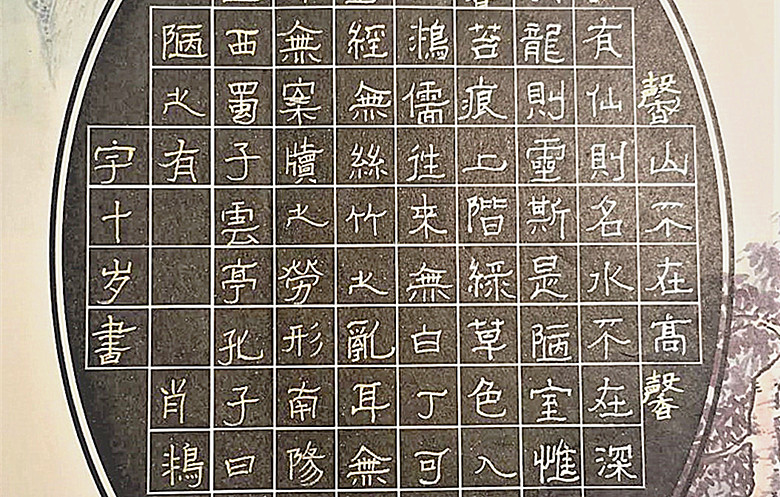 馨
山不在高
馨
有仙則名水不在深
龍則靈斯是陋室惟
苔痕上階綠草色入
鴻儒往來無白丁可
經無絲竹之亂耳無
無案牘之勞形南陽
西蜀子雲亭孔子曰
陋之有
肖鴻
宇十岁書